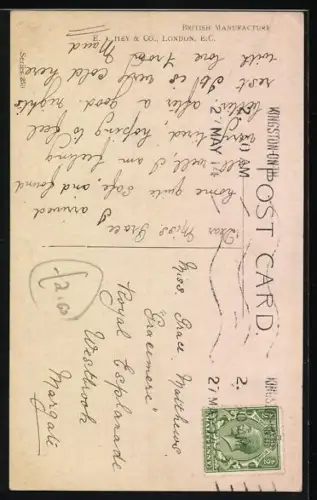 BRITISH MANUFACTURE
E. A. HEY & CO., LONDON, E.C.
POST CARD.
KINGSTON-ON-TH
27 MAY 14
Dear Miss Grace
I arrived
home quite safe, and found
all well, I am feeling
very tired, hoping to feel
better after a good nights
rest. It is very cold here
with love from
Maud
Miss. Grace Matthews.
"Gracemere"
Royal Esplanade
Westbrook
Margate
£2.00